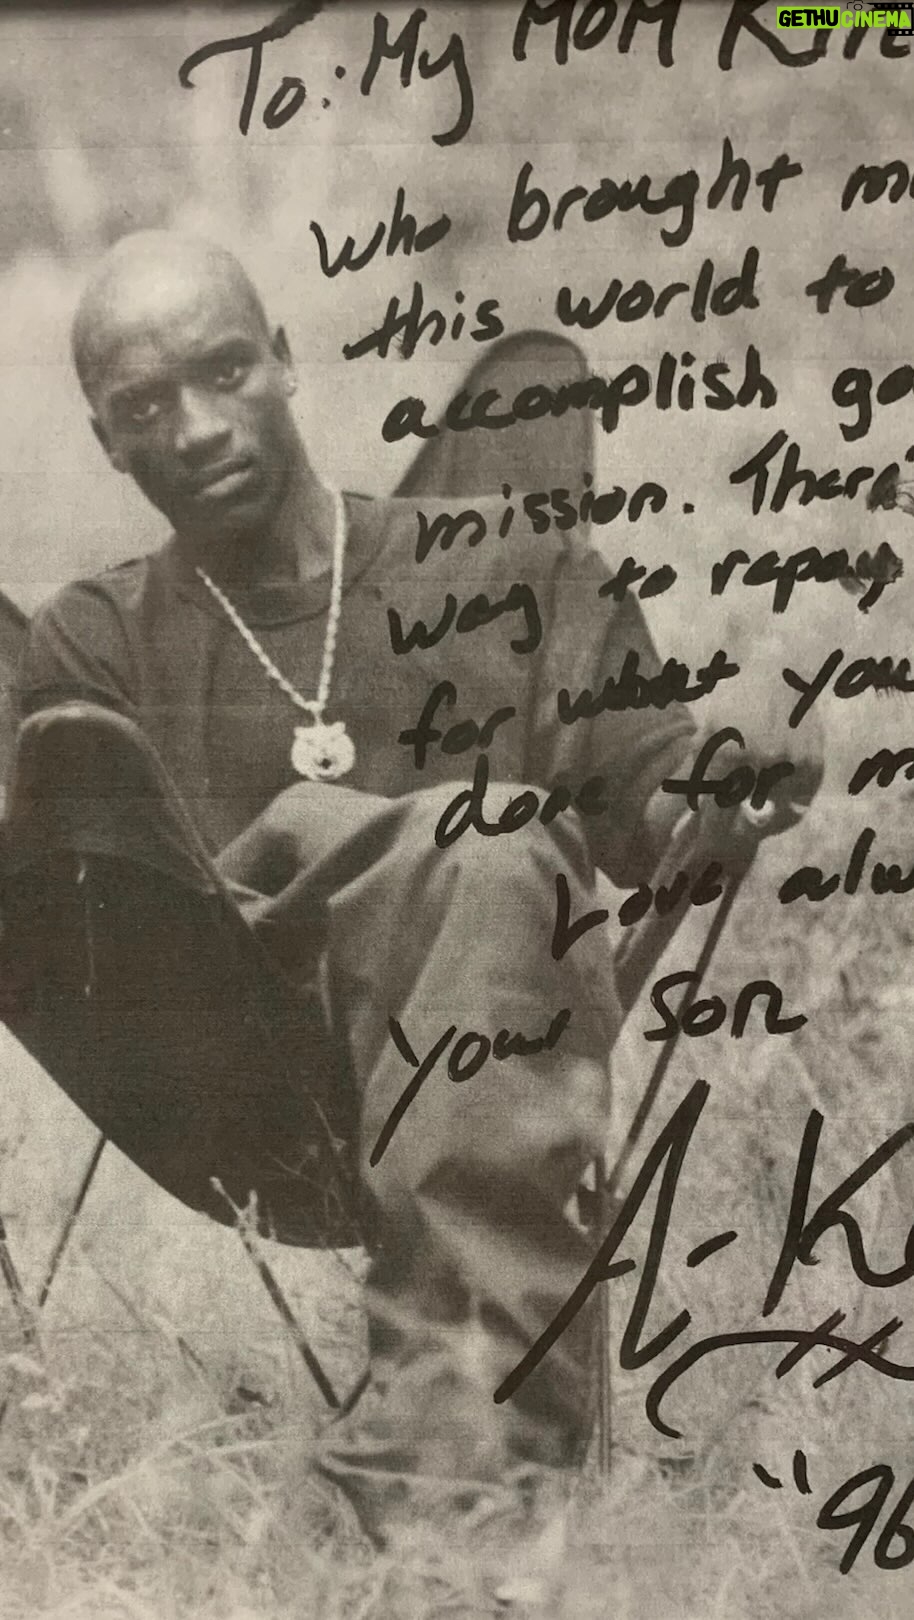 GETHUCINEMA
To: My MOM
who brought
this world to
accomplish
mission.
way to repay
for what you
done for
Love
Your Son
A-K
"96